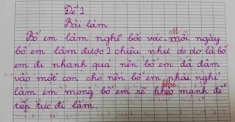 Đề 2
Bài làm
Bố em làm nghề bốc vác, mỗi ngày
bố em làm được 1 chiều như do do là bố
em đi nhanh quá nên bố em đã dẫm
vào một con chó nên bố em phải nghỉ
làm em mong bố em sẽ khỏe mạnh để
tiếp tục đi làm.